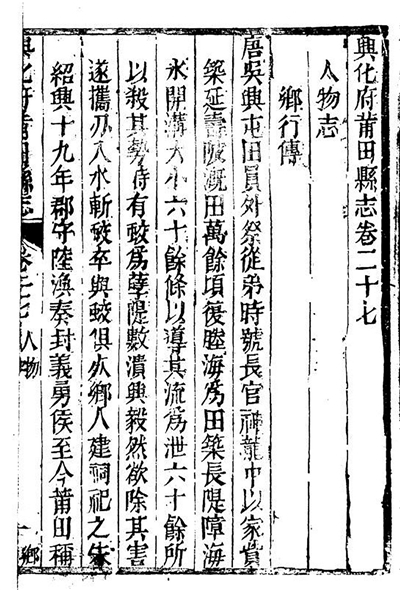 興化府莆田縣志卷二十七
人物志
鄉行傳
唐吳興屯田員外祭從弟時號長官神龍中以家貲
築延壽陂溉田萬餘頃復塍海為田築長隄障海
水開溝大小六十餘條以導其流為泄六十餘所
以殺其勢時有蛟為孽隄數潰興毅然欲除其害
遂攜刃入水斬蛟卒與蛟俱死鄉人建祠祀之宋
紹興十九年郡守陸渙奏封義勇侯至今莆田稱
興化府莆田縣志
卷二七 人物
一 鄉